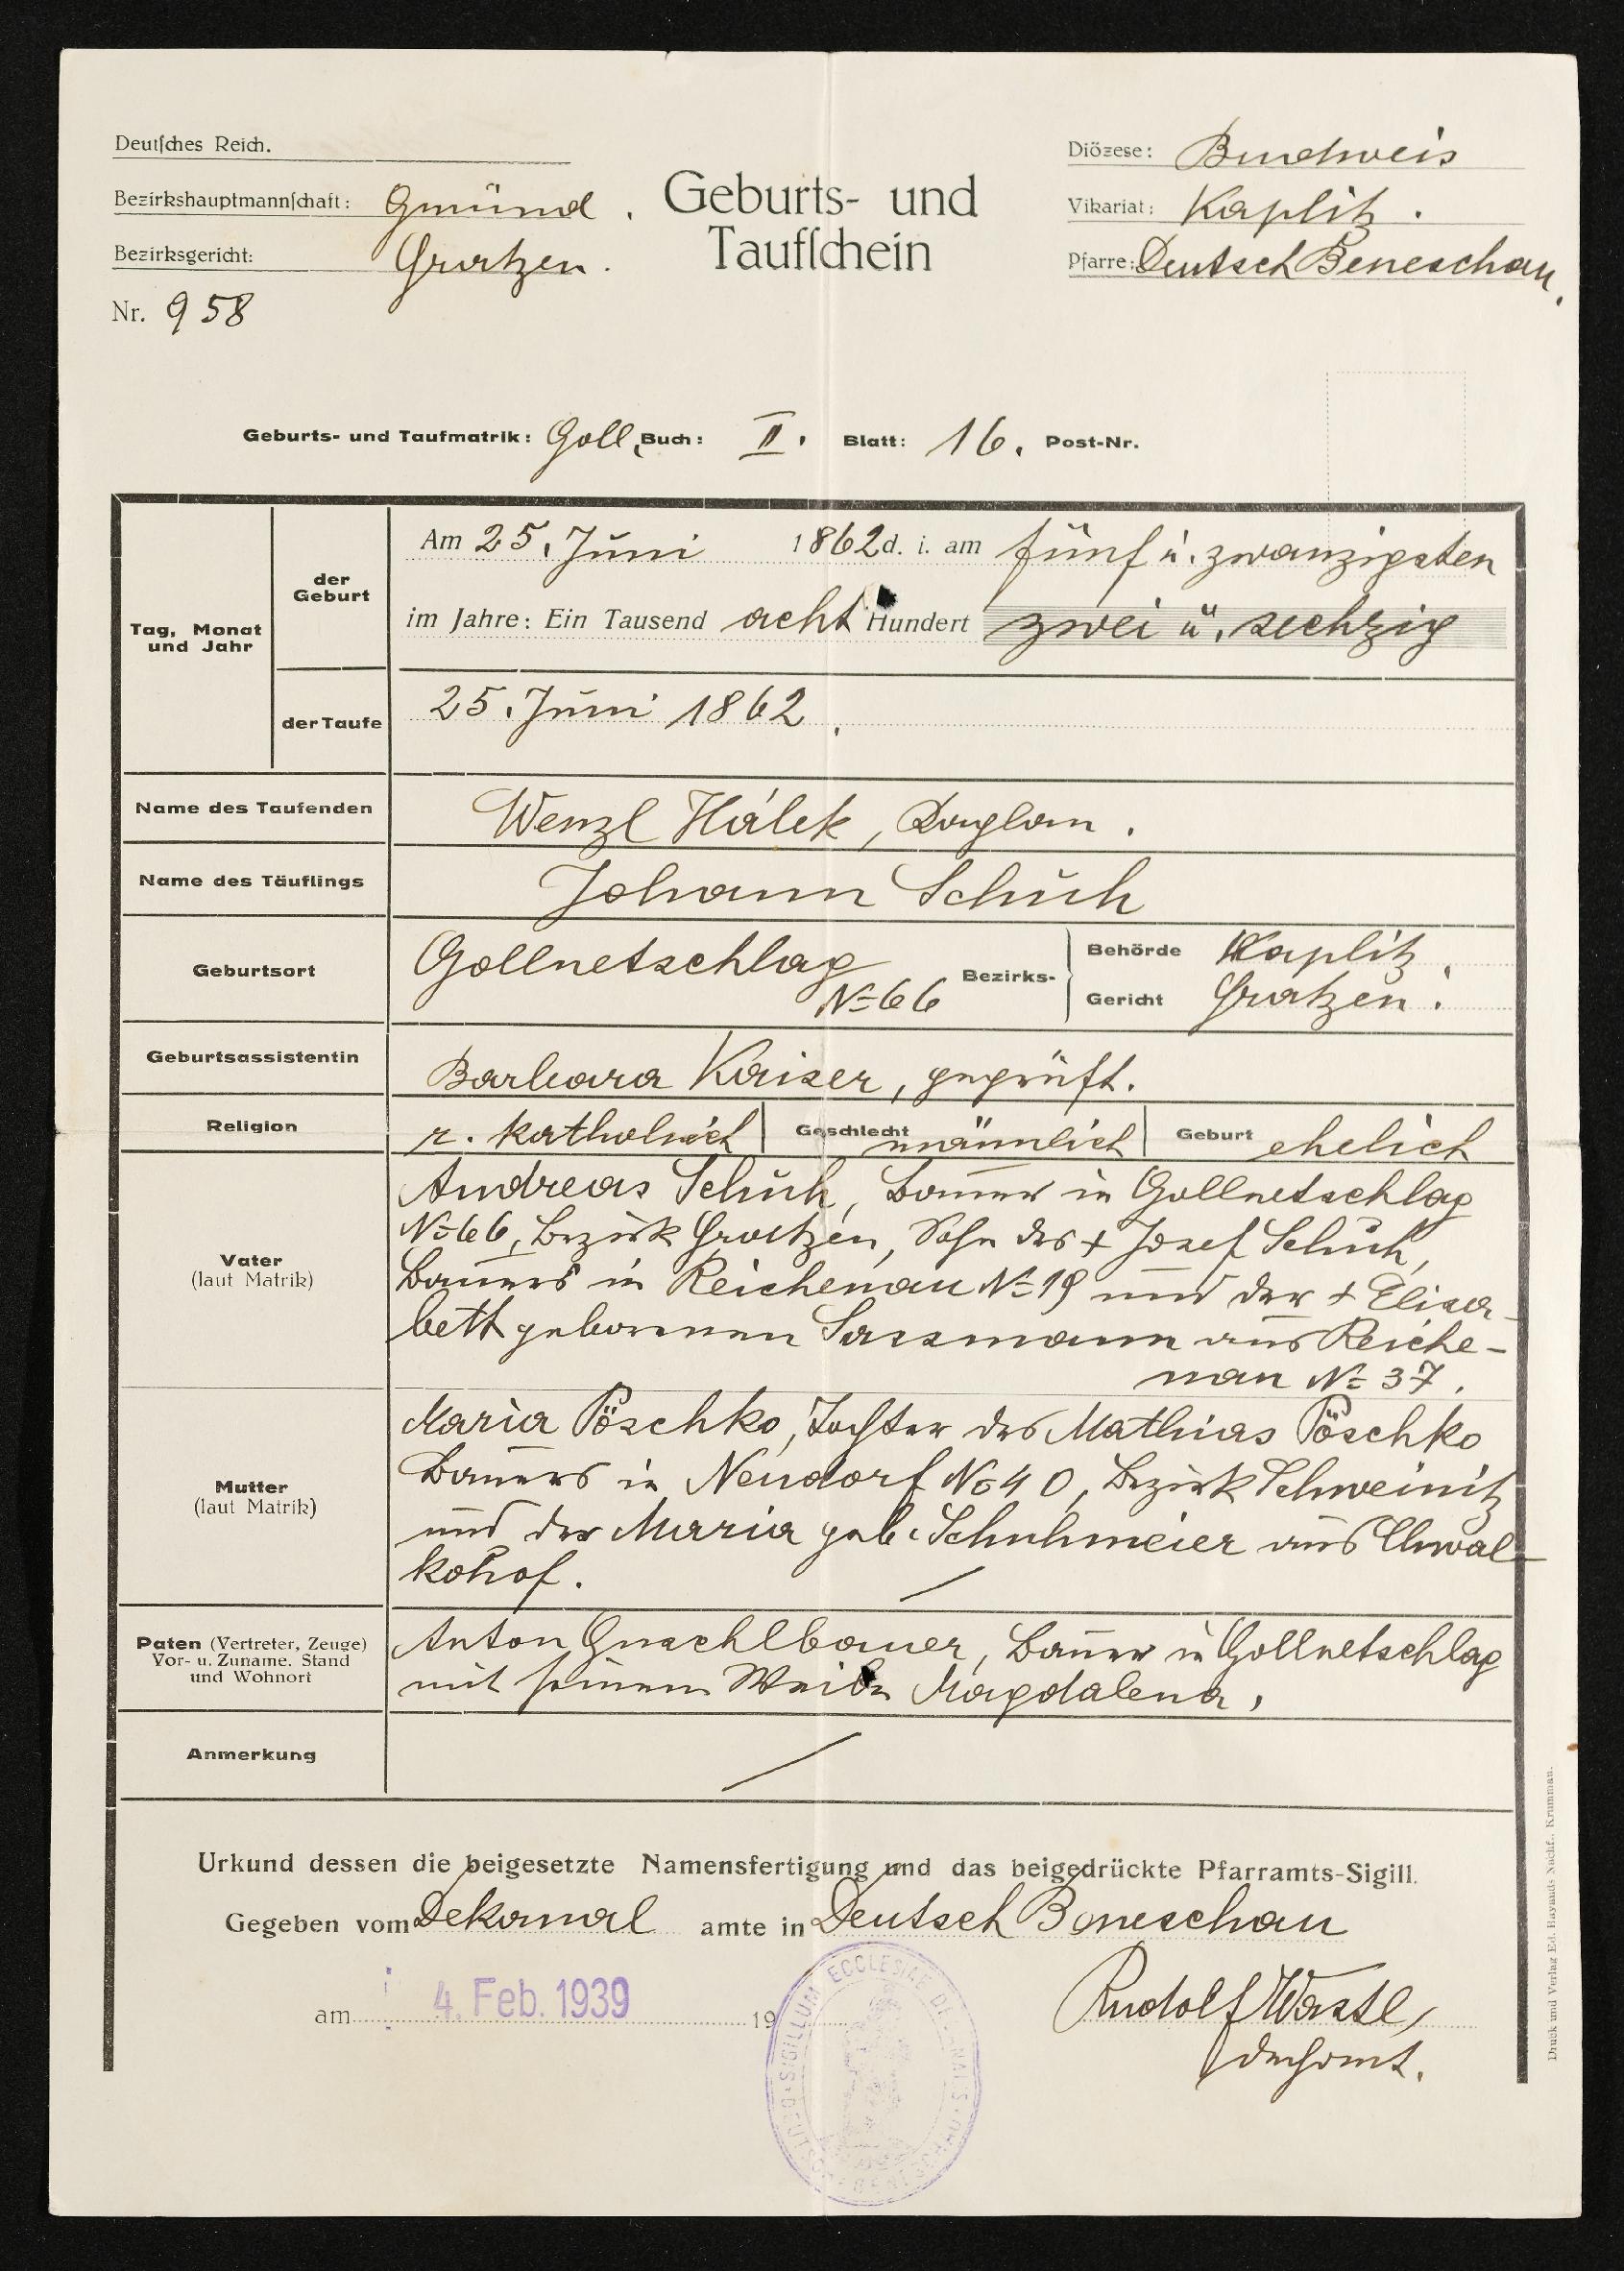 Deutſches Reich.
Bezirkshauptmannſchaft: Gmünd.
Bezirksgericht: Gratzen.
Nr. 958
Geburts- und
Taufſchein
Diözese: Budweis
Vikariat: Kaplitz.
Pfarre: Deutsch Beneschau.
Geburts- und Taufmatrik: Goll. Buch: II. Blatt: 16. Post-Nr.
Tag, Monat und Jahr
der Geburt
Am 25. Juni 1862 d. i. am fünf u. zwanzigsten
im Jahre: Ein Tausend acht Hundert zwei u. sechzig
der Taufe 25. Juni 1862.
Name des Taufenden Wenzl Hálek, Kaplan.
Name des Täuflings Johann Schuh
Geburtsort Gollnetschlag Bezirks- Behörde Kaplitz.
No 66 Gericht Gratzen.
Geburtsassistentin Barbara Kaiser, geprüft.
Religion r. katholisch Geschlecht männlich Geburt ehelich
Vater
(laut Matrik)
Andreas Schuh, Bauer in Gollnetschlag
No 66, Bezirk Gratzen, Sohn des + Josef Schuh,
Bauers in Reichenau No 19 und der + Elisa-
beth geborenen Sassmann aus Reiche-
nau No 37.
Mutter
(laut Matrik)
Maria Pöschko, Tochter des Mathias Pöschko
Bauers in Neudorf No 40, Bezirk Schweinitz
und der Maria geb. Schuhmeier aus Chwal-
kohof.
Paten (Vertreter, Zeuge)
Vor- u. Zuname. Stand
und Wohnort
Anton Guschlbauer, Bauer in Gollnetschlag
mit seinem Weibe Magdalena.
Anmerkung
Urkund dessen die beigesetzte Namensfertigung und das beigedrückte Pfarramts-Sigill.
Gegeben vom Dekanal amte in Deutsch Beneschau
am 4. Feb. 1939 19
Rudolf Wastl,
Dechant.
SIGILLUM ECCLESIAE DECANALIS
Druck und Verlag Ed. Bayands Nachf., Krummau.